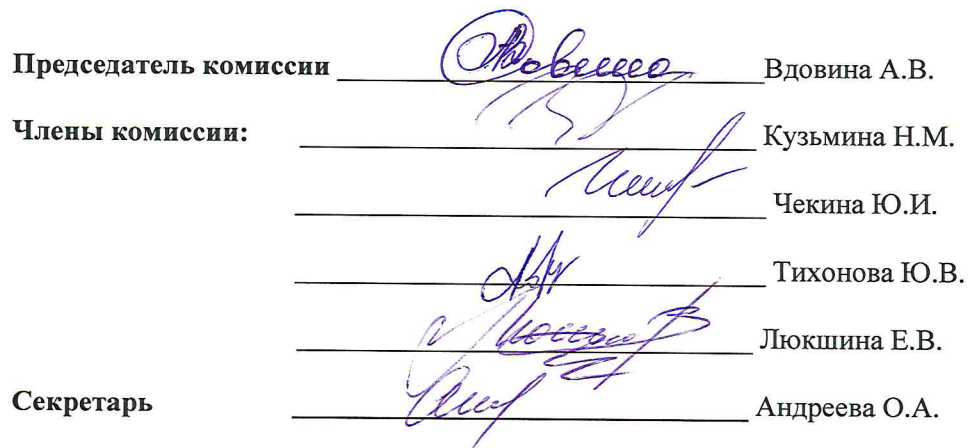 Председатель комиссии Вдовина А.В.
Члены комиссии: Кузьмина Н.М.
Чекина Ю.И.
Тихонова Ю.В.
Люкшина Е.В.
Секретарь Андреева О.А.